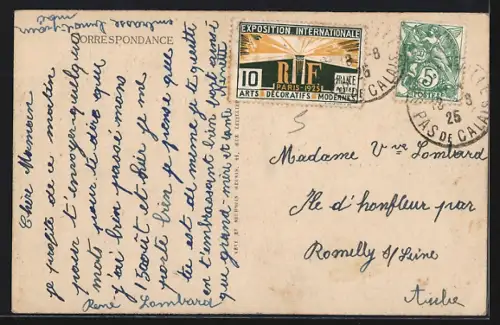 CORRESPONDANCE
Cher Maman
je profite de ce matin
pour t'envoyer quelque
mots pour te dire que
j'ai bien passé mons
15 août et hier je ne
porte bien je pense que
toi est de même je te quitte
en t'embrassant bien fort ainsi
que grand-mère et tante
René Lombard
embrasse
EXPOSITION INTERNATIONALE
10
RF
PARIS-1925
FRANCE
POSTES
ARTS DÉCORATIFS MODERNES
5c
PAS DE CALAIS
25
PAS DE CALAIS
5
Madame Vve Lombard
Ile d'honfleur par
Romilly S/Seine
Aube